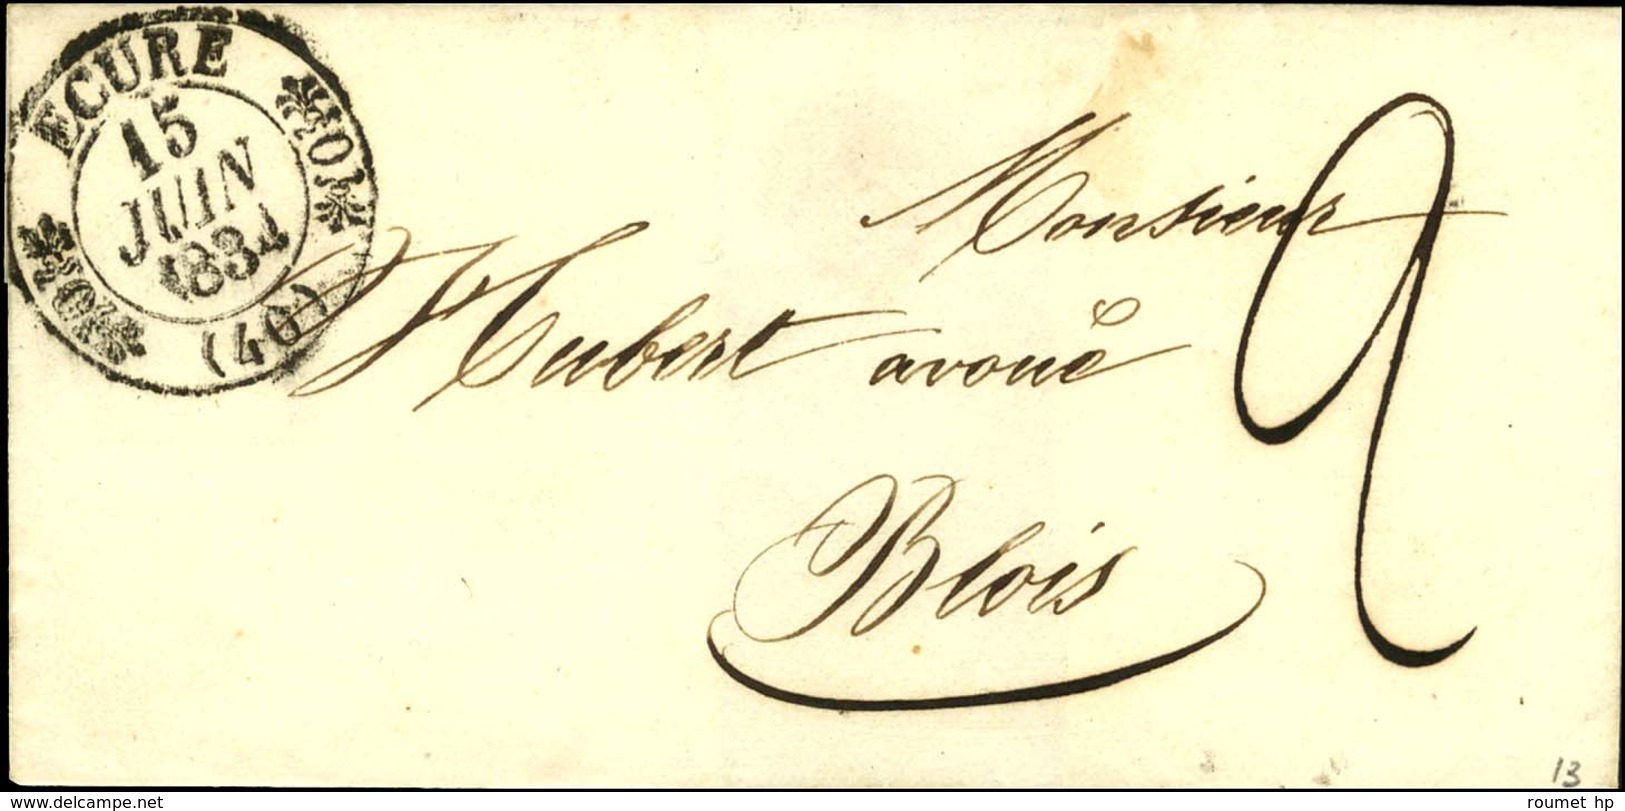 ECURE
15
JUIN
1834
(40)
Monsieur
Hubert avoué
Blois
9
13
www.delcampe.net
roumet hp